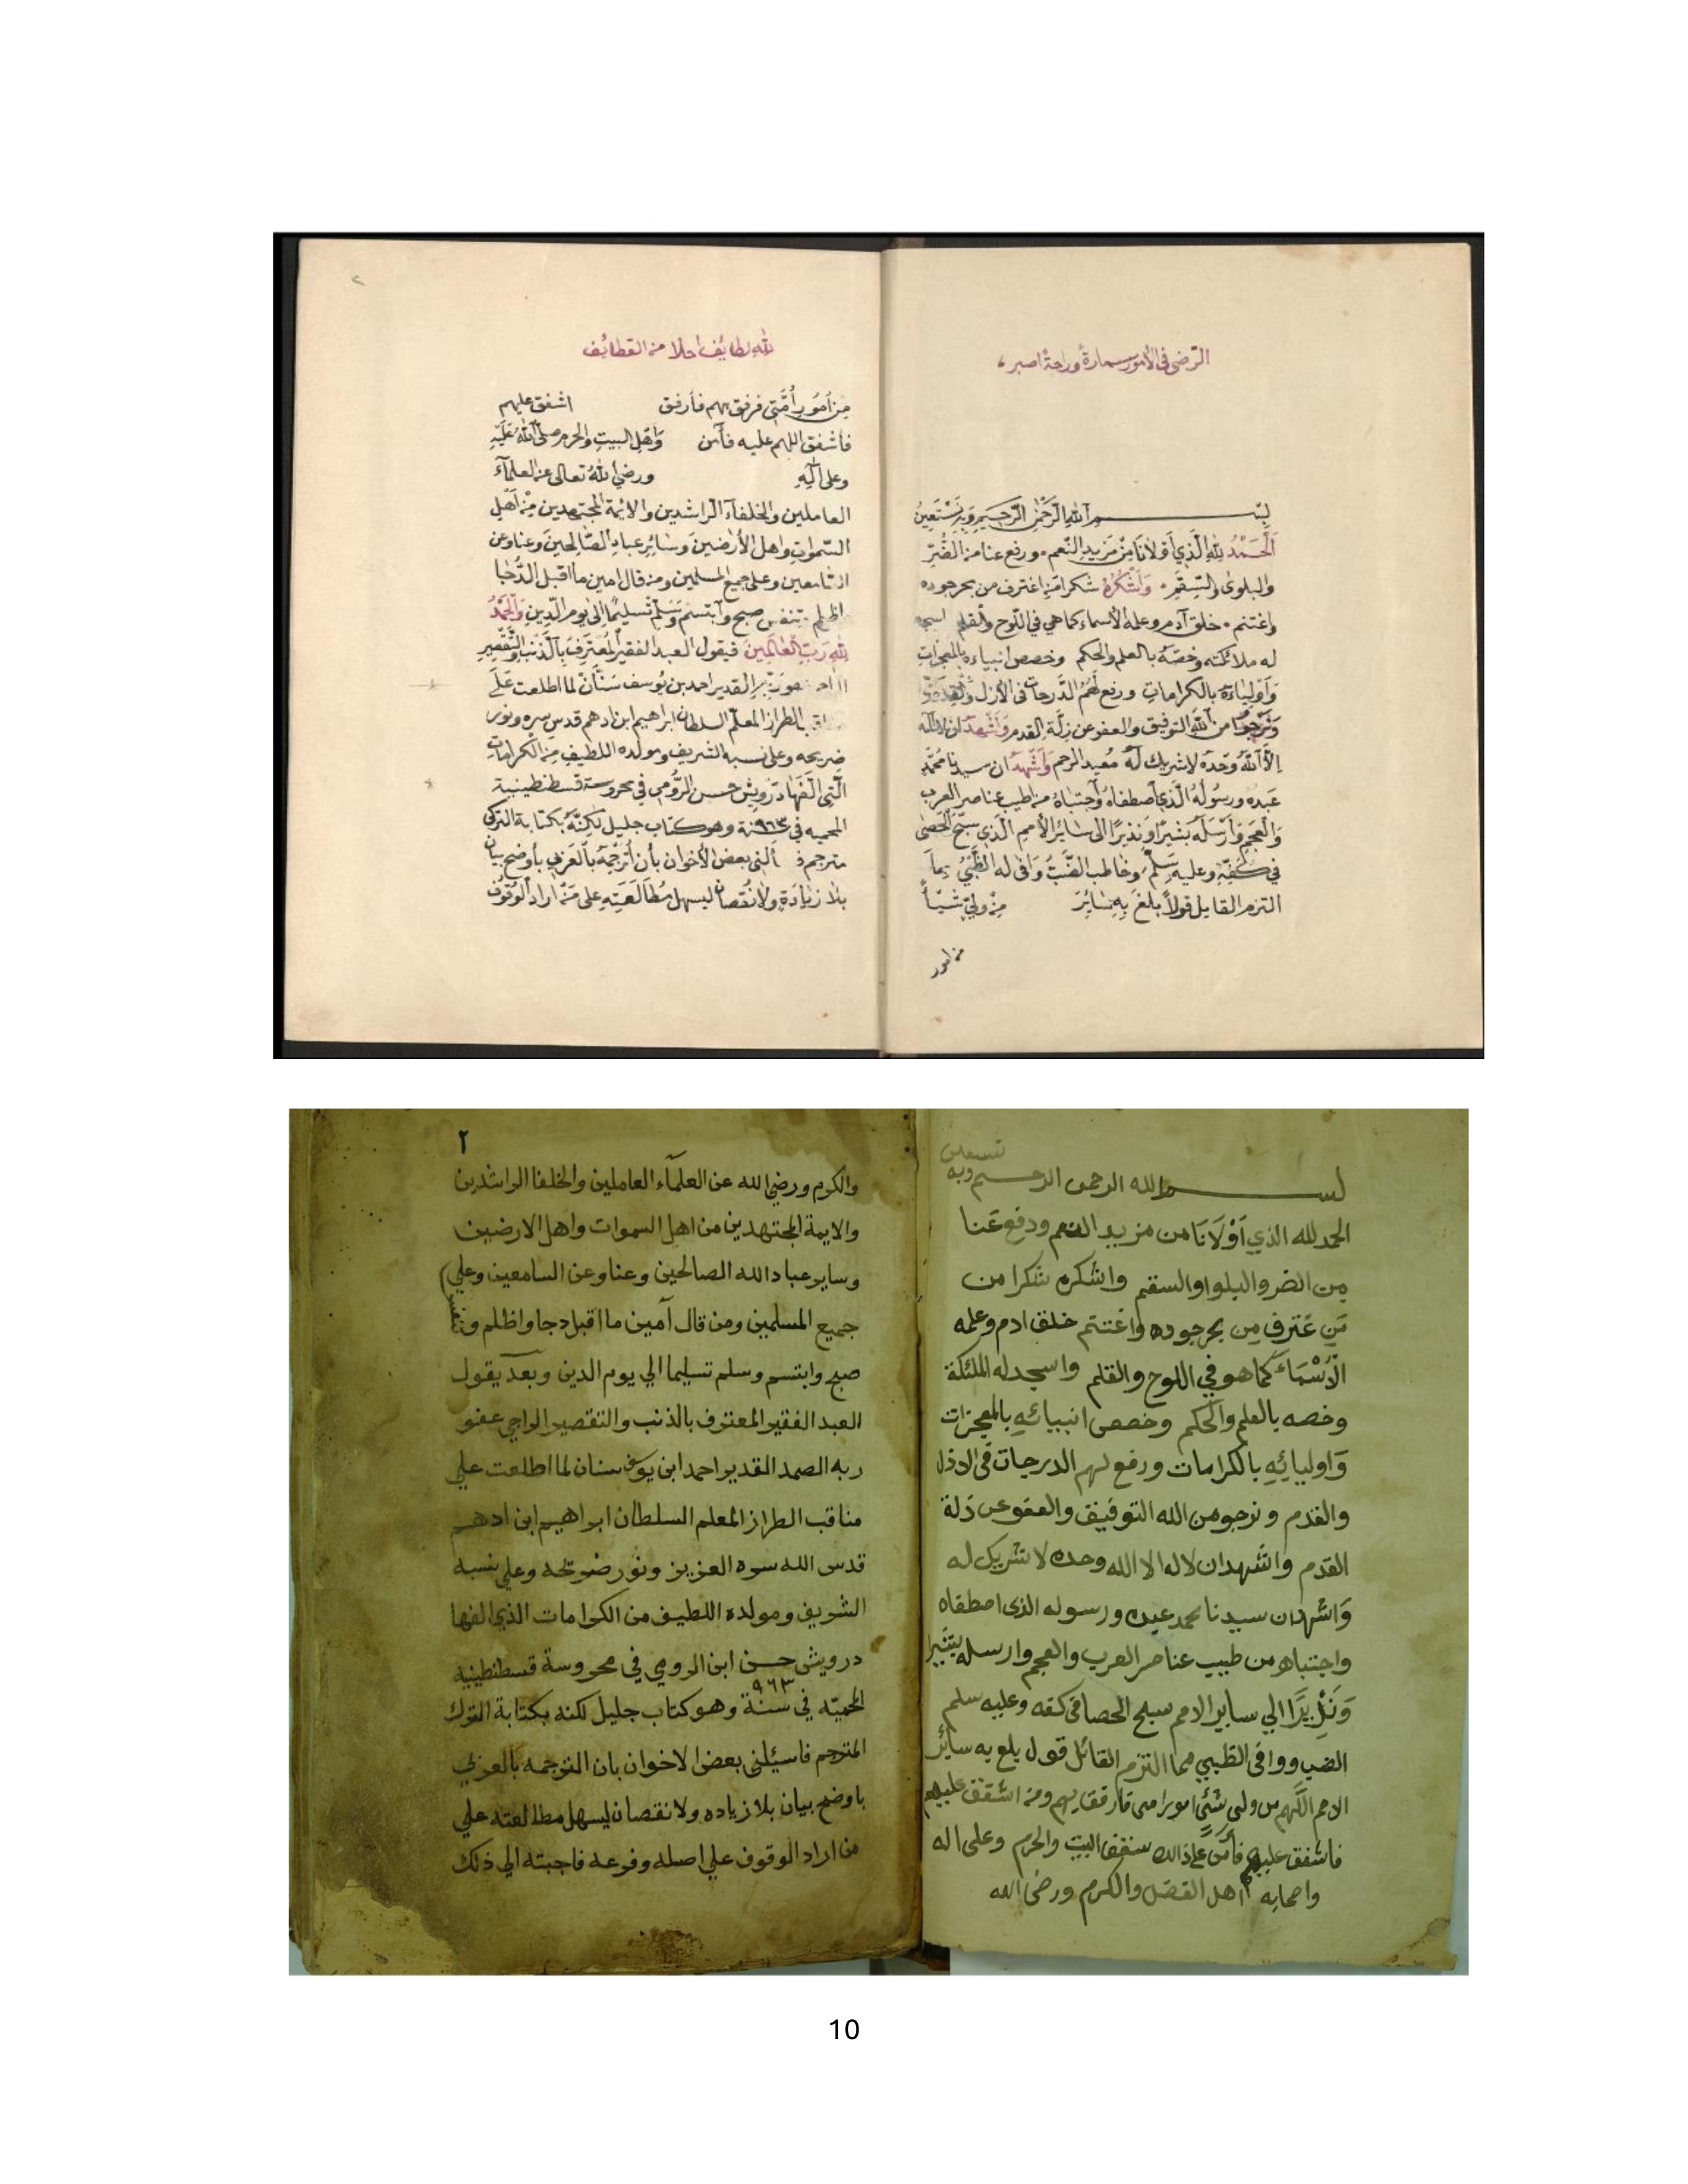 الرضى في الأمور سمارة وراحة اصبر
بسم الله الرحمن الرحيم وبه نستعين
الحمد لله الذي أولانا من مزيد النعم ورفع عنا من الضر
والبلوى والسقم وأشكره شكرا من اغترف من بحر جوده
واغتنم خلق آدم وعلمه الأسماء كما هي في اللوح والقلم اسجد
له ملائكته وخصه بالعلم والحكم وخصص انبياءه بالمعجزات
وأولياءه بالكرامات ورفع لهم الدرجات في الأزل والقدم
ونرجوا من الله التوفيق والعفو عن زلة القدم وأشهد ان لا إله
إلا الله وحده لا شريك له معيد الرحم وأشهد ان سيدنا محمد
عبده ورسوله الذي أصطفاه وأجتباه من اطيب عناصر العرب
والعجم وأرسله بشيرا ونذيرا الى سائر الأمم الذي سبح الحصى
في كفه وعليه سلم وخاطب الضب وافى له الظبي بما
التزم القايل قولا بلغ به سائر من ولي شيأ
من امور
لله لطايف احلا من القطائف
من أمور أمتي فرفق بهم فأرفق اشفق عليهم
فأشفق اللهم عليه فآمن وأهل البيت والحرم صلى الله عليه
وعلى آله ورضي الله تعالى عن العلماء
العاملين والخلفاء الراشدين والائمة المجتهدين من أهل
السموات واهل الأرضين وسائر عباد الصالحين وعنا وعن
السامعين وعلى جميع المسلمين ومن قال امين ما اقبل الدجا
واظلم تنفس صبح وابتسم وسلم تسليما إلى يوم الدين والحمد
لله رب العالمين فيقول العبد الفقير المعترف بالذنب والتقصير
عفو ربه القدير احمد بن يوسف سنان لما اطلعت على
الطراز المعلم السلطان ابراهيم ابن ادهم قدس سره ونور
ضريحه وعلى نسبه الشريف ومولده اللطيف من الكرامات
التي الفها درويش حسن الرومي في محروسة قسطنطينية
المحميه في ٩٦٣ سنة وهو كتاب جليل لكنه بكتابة التركي
مترجم ألني بعض الأخوان بأن أترجمه بالعربي بأوضح بيان
بلا زيادة ولا نقصان ليسهل مطالعته على من اراد الوقوف
بسم الله الرحمن الرحيم وبه نستعين
الحمد لله الذي أولانا من مزيد النعم ودفع عنا
من الضر والبلوا والسقم واشكره شكرا من
من غترف من بحر جوده واغتنم خلق ادم وعلمه
الأسماء كما هو في اللوح والقلم واسجد له الملئكة
وخصه بالعلم والحكم وخصص انبيائه بالمعجزات
واوليائه بالكرامات ورفع لهم الدرجات في الاذل
والقدم ونرجو من الله التوفيق والعفو عن ذلة
القدم واشهد ان لاله الا الله وحده لا شريك له
واشهد ان سيدنا محمد عبده ورسوله الذى اصطفاه
واجتباه من طيب عناصر العرب والعجم وارسله بشيرا
ونذيرا الي ساير الامم سبح الحصا في كفه وعليه سلم
الضب ووافى الظبي مما التزم القائل قول بلغ به سائر
الامم اللهم من ولى شئ امور امتى فارفق بهم ومن اشفق عليهم
فاشفق عليهم البيت والحرم وعلى اله
واصحابه اهل الفضل والكرم ورضى الله
٢
والكرم ورضي الله عن العلماء العاملين والخلفا الراشدين
والايمة المجتهدين من اهل السموات واهل الارضين
وساير عباد الله الصالحين وعنا وعن السامعين وعلي
جميع المسلمين ومن قال آمين ما اقبل دجا واظلم وتنفس
صبح وابتسم وسلم تسليما الي يوم الدين وبعد يقول
العبد الفقير المعترف بالذنب والتقصير الراجي عفو
ربه الصمد القدير احمد ابن يوسف سنان لما اطلعت علي
مناقب الطراز المعلم السلطان ابراهيم ابن ادهم
قدس الله سره العزيز ونور ضريحه وعلي نسبه
الشريف ومولده اللطيف من الكرامات الذي الفها
درويش حسن ابن الرومي في محروسة قسطنطينيه
المحميّه في سنة ٩٦٣ وهو كتاب جليل لكنه بكتابة الترك
المترجم فاسئلني بعض الاخوان بان الترجمه بالعربي
باوضح بيان بلا زياده ولا نقصان ليسهل مطالعته علي
من اراد الوقوف علي اصله وفرعه فاجبته الي ذلك
10